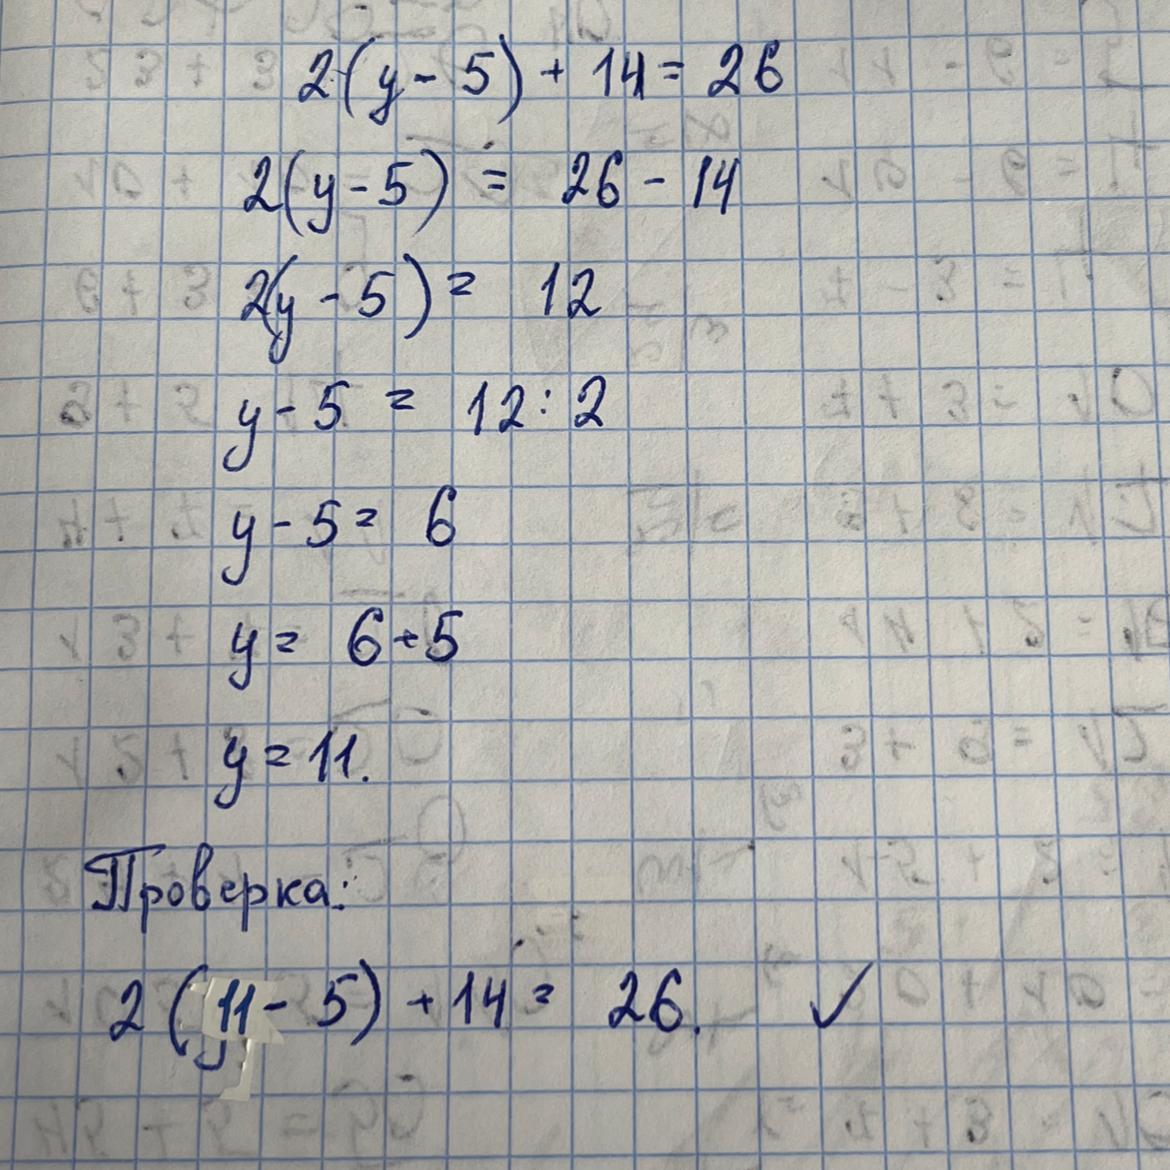 2(y - 5) + 14 = 26
2(y - 5) = 26 - 14
2(y - 5) = 12
y - 5 = 12 : 2
y - 5 = 6
y = 6 + 5
y = 11.
Проверка:
2 (11 - 5) + 14 = 26. ✓